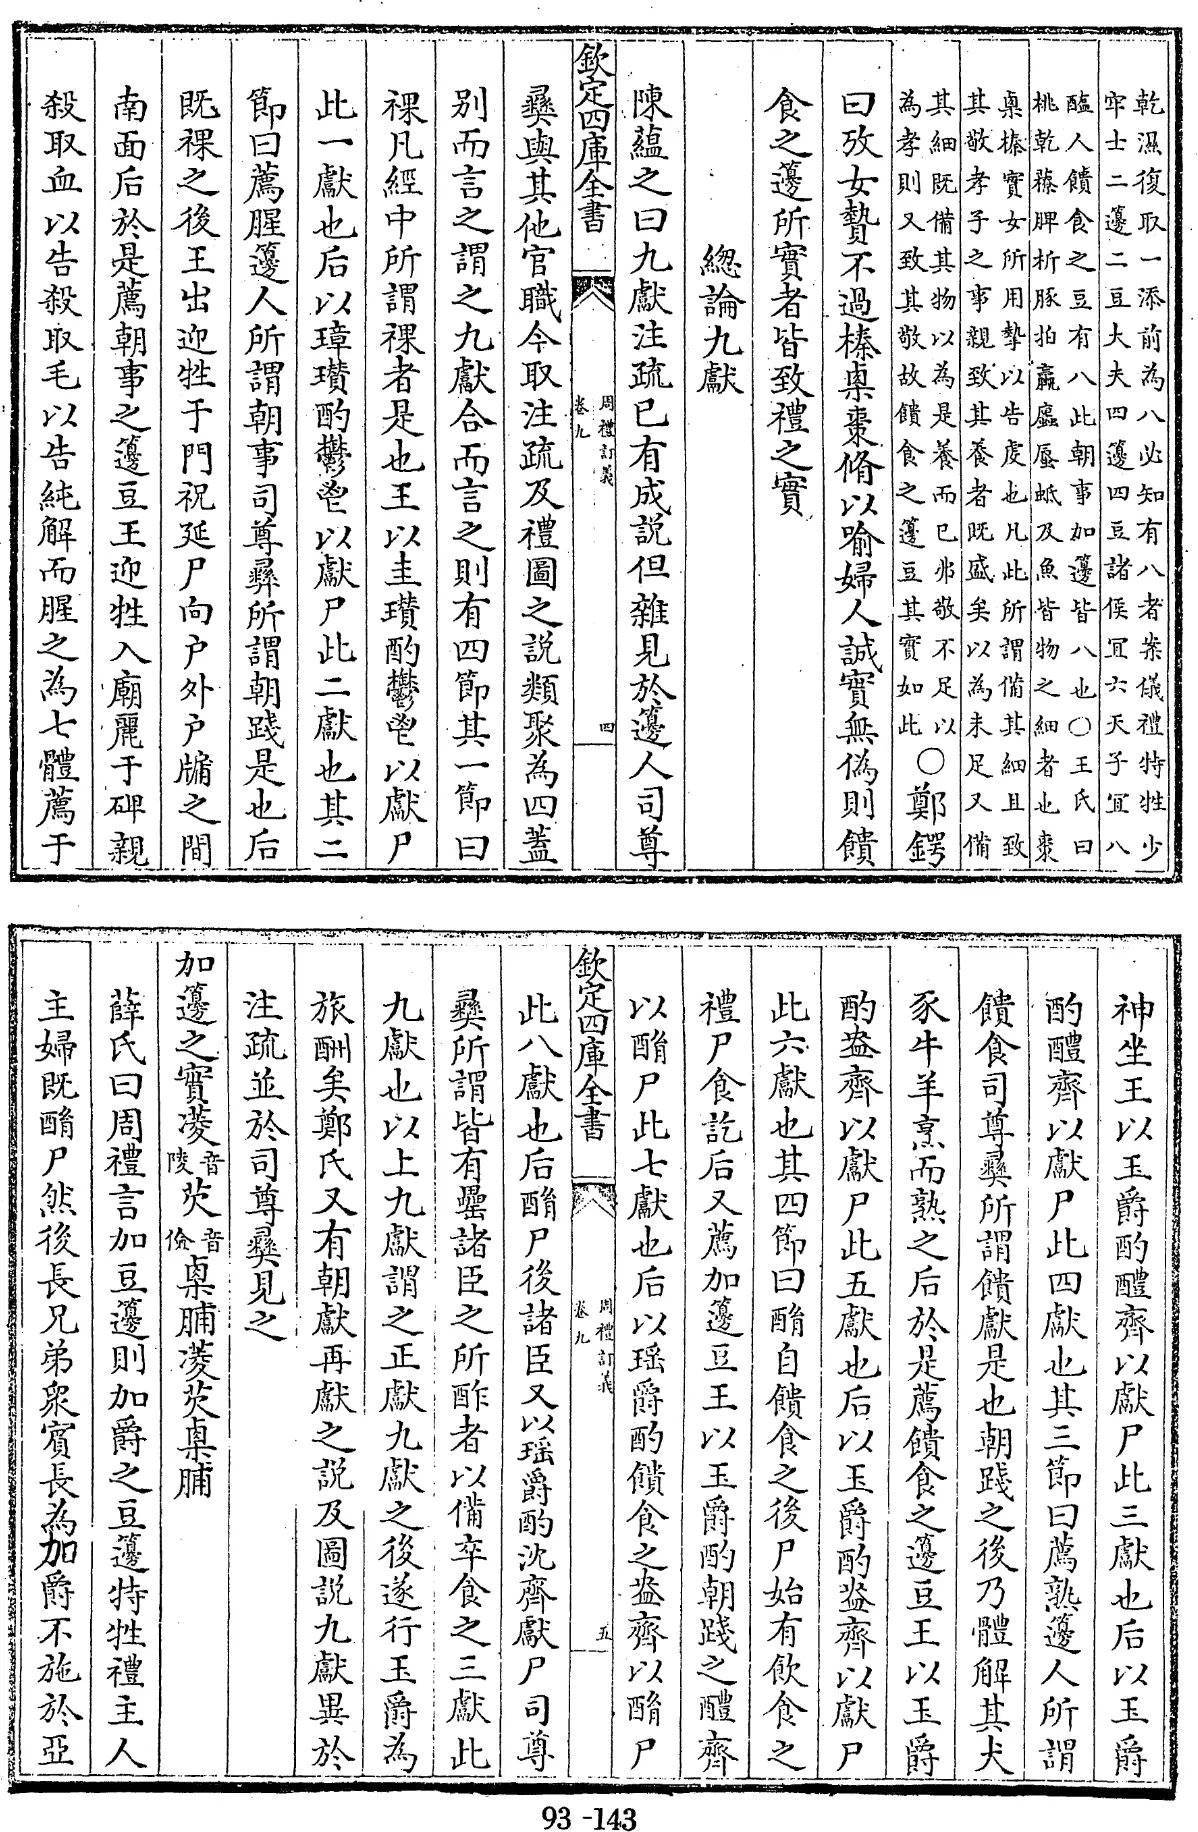 乾濕復取一添前為八必知有八者案儀禮特牲少
牢士二籩二豆大夫四籩四豆諸侯宜六天子宜八
醢人饋食之豆有八此朝事加籩皆八也〇王氏曰
桃乾䕩脾析豚拍蠃蠯蜃蚳及魚皆物之細者也棗
㮚榛實女所用摯以告虔也凡此所謂備其細且致
其敬孝子之事親致其養者既盛矣以為未足又備
其細既備其物以為是養而已弗敬不足以
為孝則又致其敬故饋食之籩豆其實如此
〇鄭鍔
曰攷女贄不過榛㮚棗脩以喻婦人誠實無偽則饋
食之籩所實者皆致禮之實
總論九獻
陳蘊之曰九獻注疏已有成説但雜見於籩人司尊
欽定四庫全書
周禮訂義
卷九
四
彞與其他官職今取注疏及禮圖之説類聚為四蓋
别而言之謂之九獻合而言之則有四節其一節曰
祼凡經中所謂祼者是也王以圭瓚酌鬱鬯以獻尸
此一獻也后以璋瓚酌鬱鬯以獻尸此二獻也其二
節曰薦腥籩人所謂朝事司尊彞所謂朝踐是也后
既祼之後王出迎牲于門祝延尸向户外户牖之間
南面后於是薦朝事之籩豆王迎牲入廟麗于碑親
殺取血以告殺取毛以告純解而腥之為七體薦于
神坐王以玉爵酌醴齊以獻尸此三獻也后以玉爵
酌醴齊以獻尸此四獻也其三節曰薦熟籩人所謂
饋食司尊彞所謂饋獻是也朝踐之後乃體解其犬
豕牛羊烹而熟之后於是薦饋食之籩豆王以玉爵
酌盎齊以獻尸此五獻也后以玉爵酌盎齊以獻尸
此六獻也其四節曰酳自饋食之後尸始有飲食之
禮尸食訖后又薦加籩豆王以玉爵酌朝踐之醴齊
以酳尸此七獻也后以瑶爵酌饋食之盎齊以酳尸
欽定四庫全書
周禮訂義
卷九
五
此八獻也后酳尸後諸臣又以瑶爵酌沈齊獻尸司尊
彞所謂皆有罍諸臣之所酢者以備卒食之三獻此
九獻也以上九獻謂之正獻九獻之後遂行玉爵為
旅酬矣鄭氏又有朝獻再獻之説及圖説九獻異於
注疏並於司尊彞見之
加籩之實蔆音陵芡音儉㮚脯蔆芡㮚脯
薛氏曰周禮言加豆籩則加爵之豆籩特牲禮主人
主婦既酳尸然後長兄弟衆賓長為加爵不施於亞
93-143